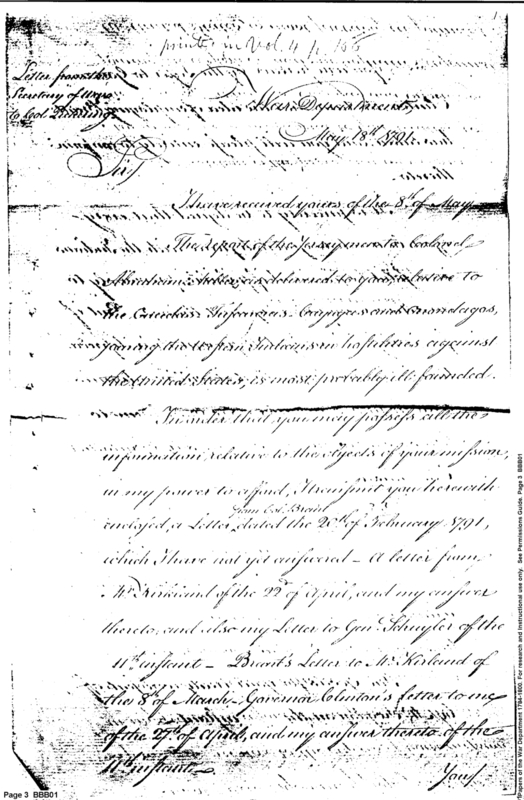 1
printed in Vol. 4 p. 166
Letter from the
Secretary of War
to Col. Pickering
War Department
May 18th 1791
Sir,
I have received yours of the 8th of May.
The report of the Jersey men to Colonel
Abraham delivered to you, relative to
the Cayugas and Onondagas,
joining the Western Indians in hostilities against
the United States, is most probably ill founded.
In order that you may possess all the
information relative to the objects of your mission,
in my power to afford, I transmit you herewith
from Col. Brant
enclosed, a Letter dated the 26th of February 1791,
which I have not yet answered – A letter from
Mr. Kirkland of the 22d of April, and my answer
thereto, and also my Letter to Genl. Schuyler of the
11th instant – Brant's Letter to Mr. Kirland of
the 8th of March – Governor Clinton's letter to me
of the 27th of April, and my answer thereto of the
11th instant
Your
Page 3 BBB01
Papers of the War Department 1784-1800. For research and instructional use only. See Permissions Guide. Page 3 BBB01